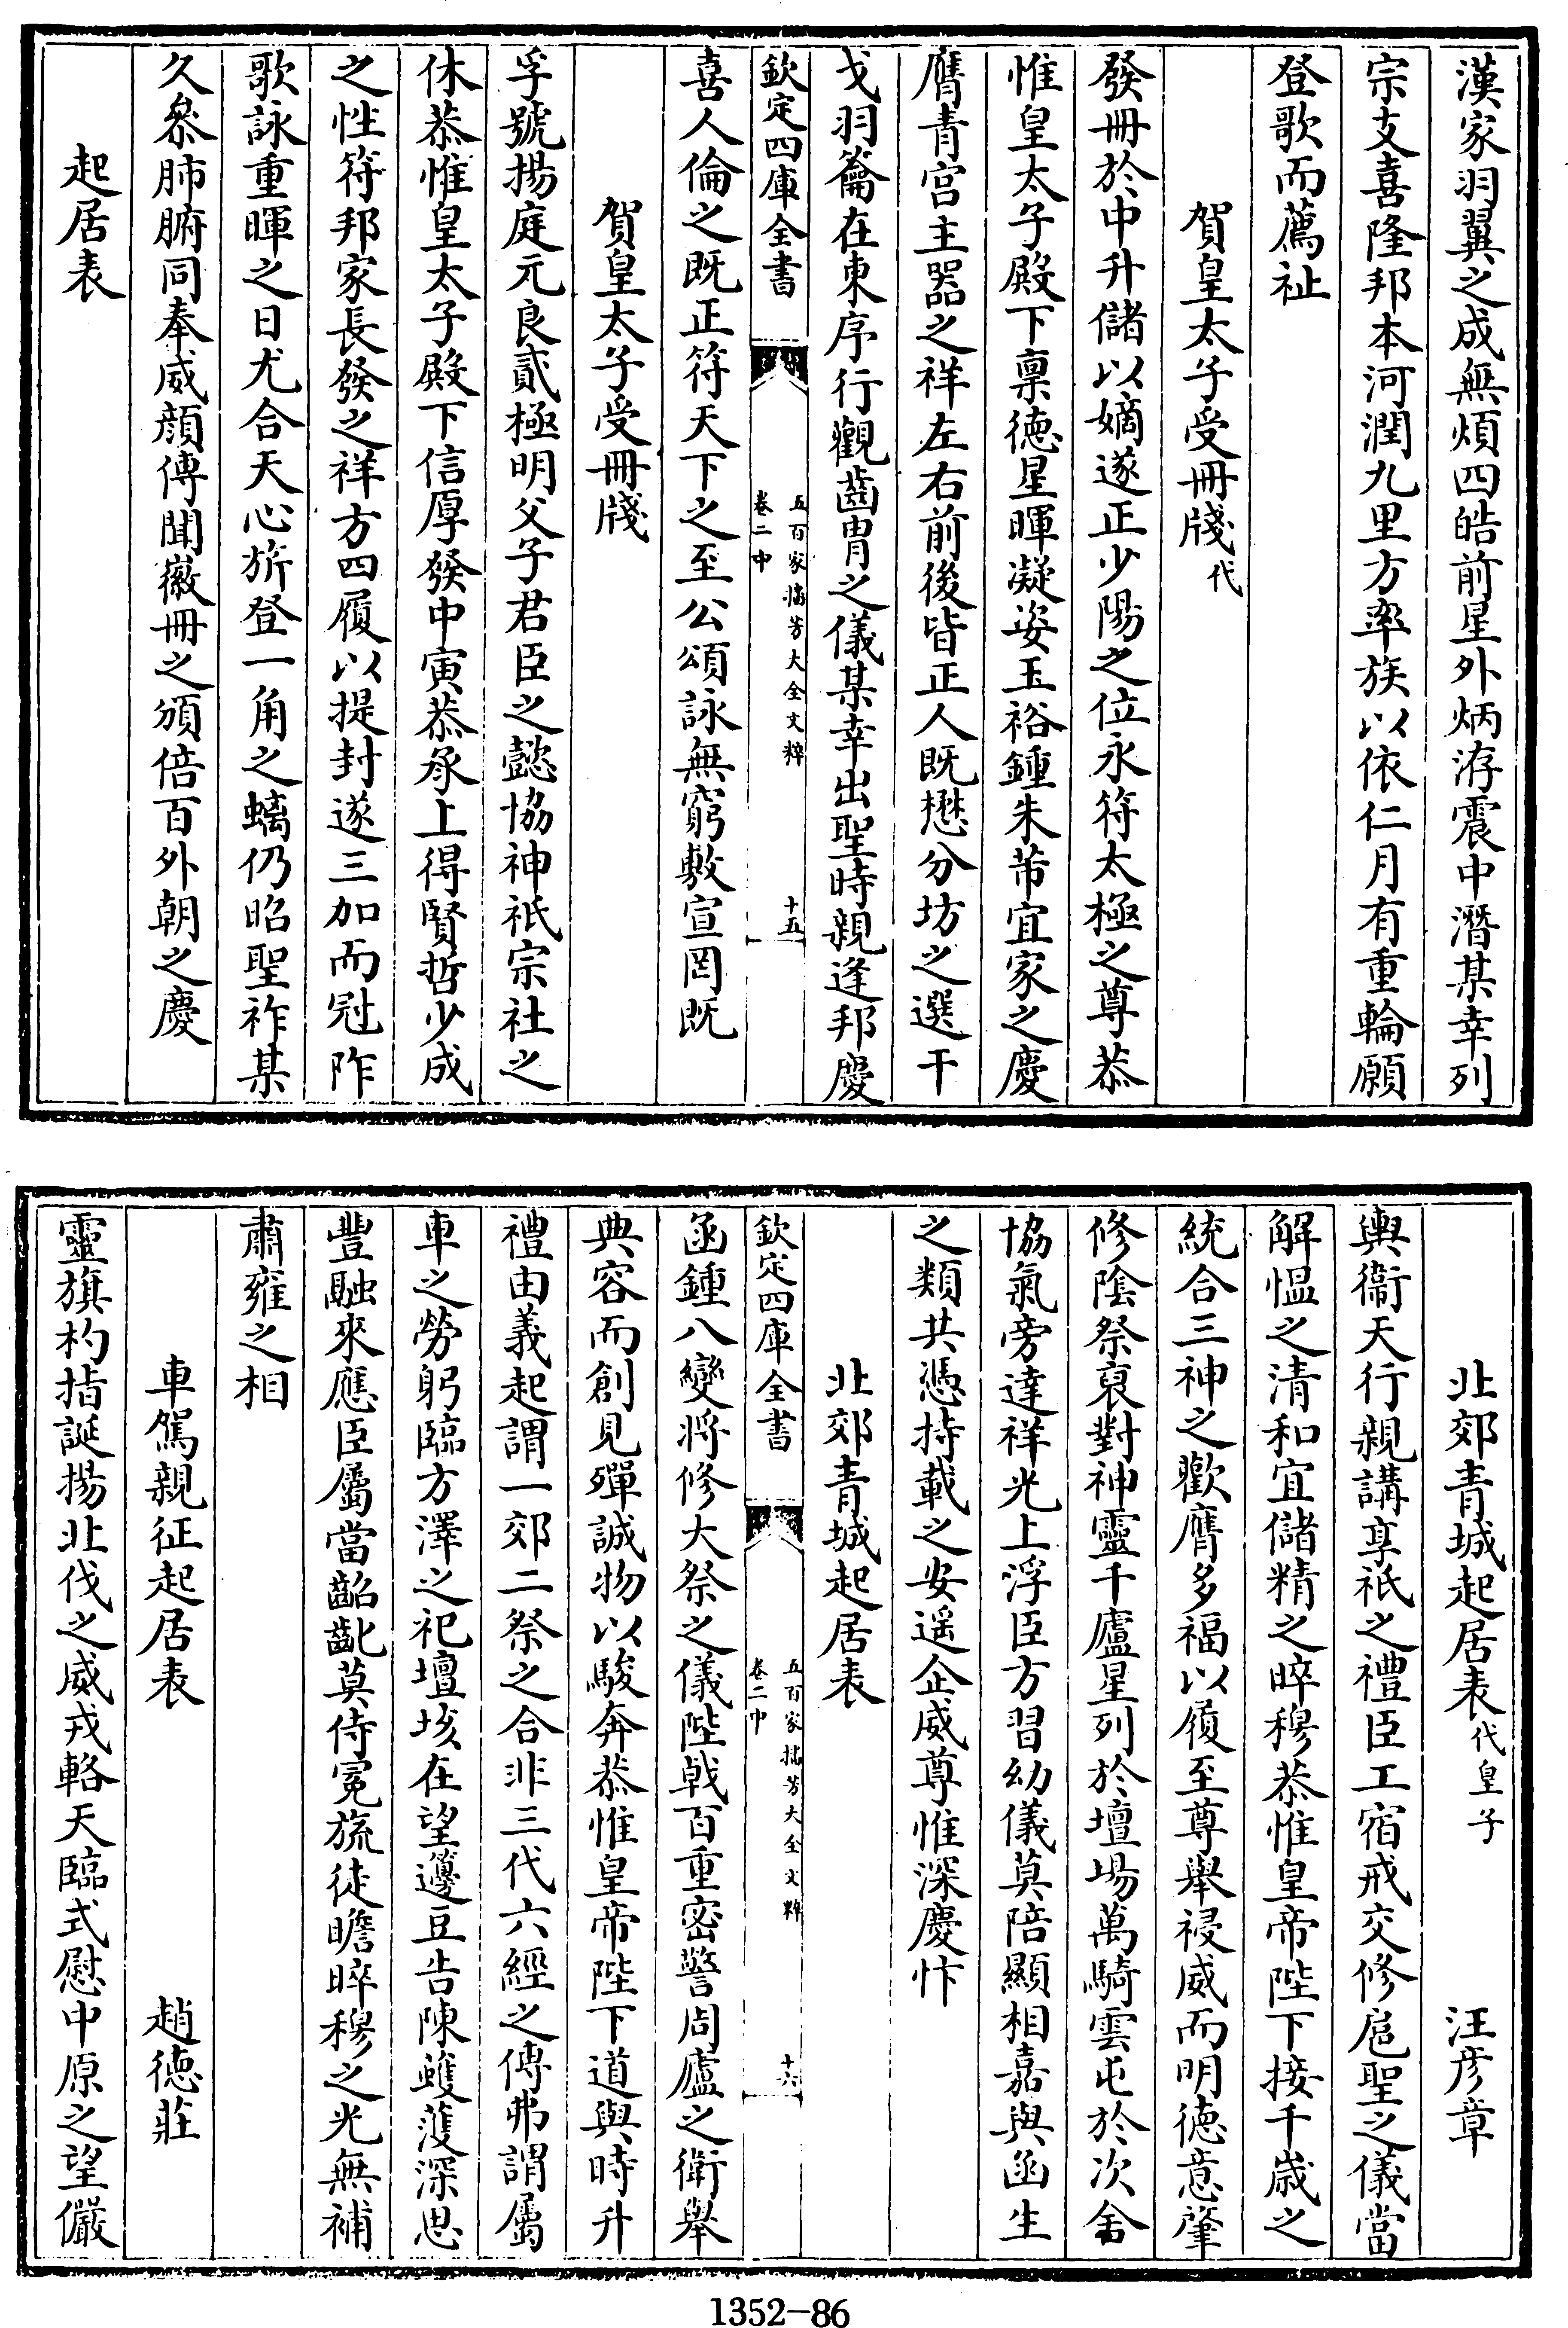 漢家羽翼之成無煩四皓前星外炳洊震中潛某幸列
宗支喜隆邦本河潤九里方率族以依仁月有重輪願
登歌而薦祉
賀皇太子受冊牋代
發冊於中升儲以嫡遂正少陽之位永符太極之尊恭
惟皇太子殿下禀德星暉凝姿玉裕鍾朱芾宜家之慶
膺青宫主器之祥左右前後皆正人既懋分坊之選干
戈羽籥在東序行觀齒胄之儀某幸出聖時親逢邦慶
欽定四庫全書
五百家播芳大全文粹
卷二中
十五
喜人倫之既正符天下之至公頌詠無窮敷宣罔既
賀皇太子受冊牋
孚號揚庭元良貳極明父子君臣之懿協神祇宗社之
休恭惟皇太子殿下信厚發中寅恭承上得賢哲少成
之性符邦家長發之祥方四履以提封遂三加而冠阼
歌詠重暉之日尤合天心斾登一角之螭仍昭聖祚某
久叅肺腑同奉威顔傳聞徽冊之頒倍百外朝之慶
起居表
北郊青城起居表代皇子 汪彦章
輿衞天行親講享祇之禮臣工宿戒交修扈聖之儀當
解愠之清和宜儲精之晬穆恭惟皇帝陛下接千歳之
統合三神之歡膺多福以履至尊舉祲威而明德意肇
修陰祭裒對神靈千廬星列於壇場萬騎雲屯於次舍
協氣旁達祥光上浮臣方習幼儀莫陪顯相嘉與函生
之類共憑持載之安遥企威尊惟深慶忭
北郊青城起居表
欽定四庫全書
五百家播芳大全文粹
卷二中
十六
函鍾八變將修大祭之儀陛㦸百重密警周廬之衛舉
典容而創見殫誠物以駿奔恭惟皇帝陛下道與時升
禮由義起謂一郊二祭之合非三代六經之傳弗謂屬
車之勞躬臨方澤之祀壇垓在望籩豆告陳蠖濩深思
豐融來應臣屬當齠齔莫侍冕旒徒瞻晬穆之光無補
肅雍之相
車駕親征起居表 趙德莊
靈旗杓指誕揚北伐之威戎輅天臨式慰中原之望儼
1352—86